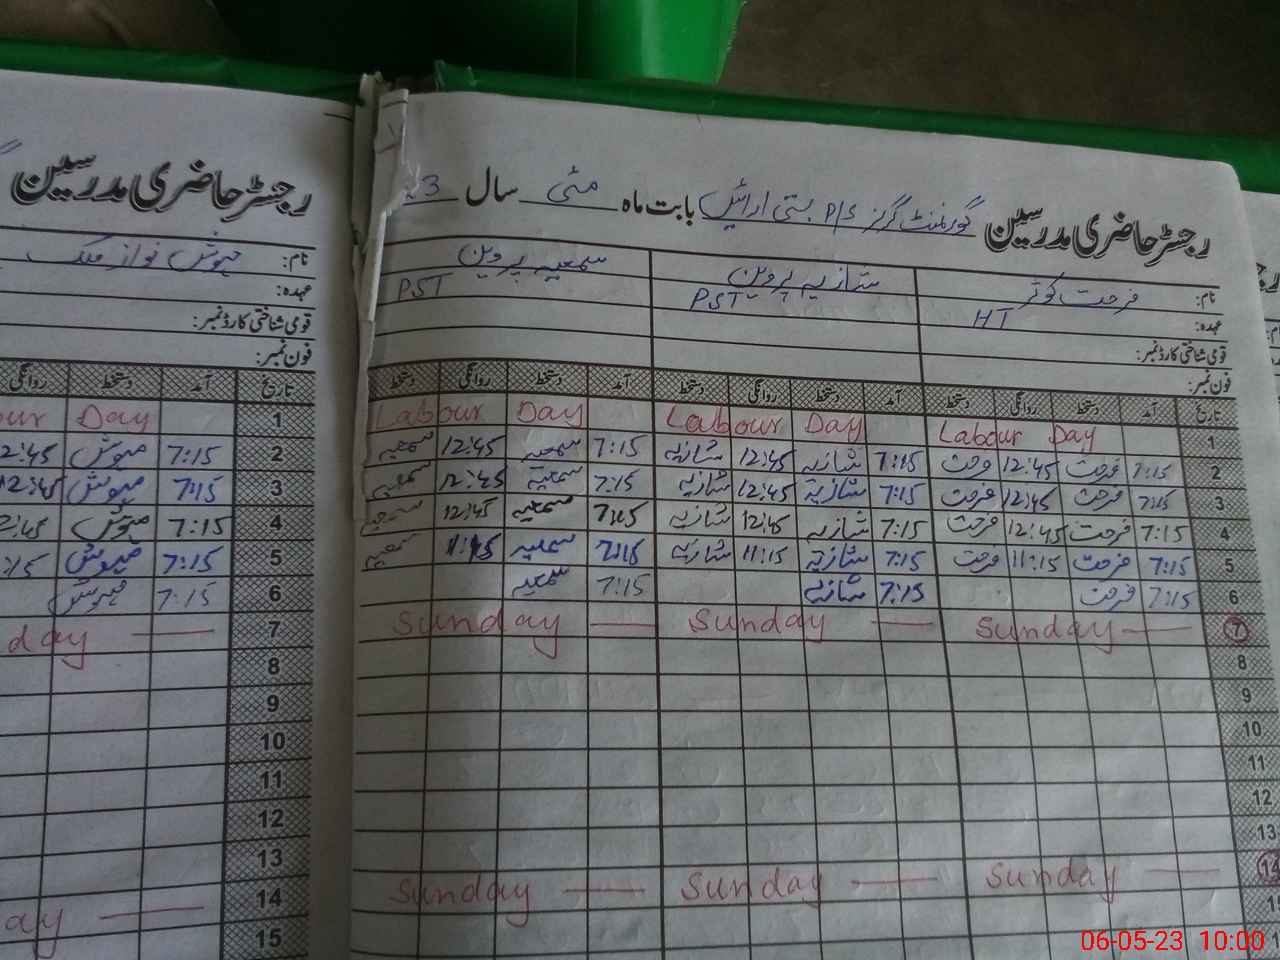 رجسٹر حاضری مدرسین گورنمنٹ گرلز P/S بستی ارائیں بابت ماہ مئی سال 23
نام: فرحت کوثر شازیہ پروین سمعیہ پروین
عہدہ: HT PST PST
قومی شناختی کارڈ نمبر:
فون نمبر:
تاریخ آمد دستخط روانگی دستخط آمد دستخط روانگی دستخط آمد دستخط روانگی دستخط
1 Labour Day Labour Day Labour Day
2 7:15 فرحت 12:45 فرحت 7:15 شازیہ 12:45 شازیہ 7:15 سمعیہ 12:45 سمعیہ
3 7:15 فرحت 12:45 فرحت 7:15 شازیہ 12:45 شازیہ 7:15 سمعیہ 12:45 سمعیہ
4 7:15 فرحت 12:45 فرحت 7:15 شازیہ 12:45 شازیہ 7:15 سمعیہ 12:45 سمعیہ
5 7:15 فرحت 11:15 فرحت 7:15 شازیہ 11:15 شازیہ 7:15 سمعیہ 11:15 سمعیہ
6 7:15 فرحت 7:15 شازیہ 7:15 سمعیہ
7 Sunday Sunday Sunday
8
9
10
11
12
13
14 Sunday Sunday Sunday
رجسٹر حاضری مدرسین
نام: مہوش نواز ملک
عہدہ:
قومی شناختی کارڈ نمبر:
فون نمبر:
تاریخ آمد دستخط روانگی
1 Day our
2 7:15 مہوش 2:45
3 7:15 مہوش 12:45
4 7:15 مہوش 2:45
5 7:15 مہوش :15
6 7:15 مہوش
7 day
8
9
10
11
12
13
14 ay
15
06-05-23 10:00